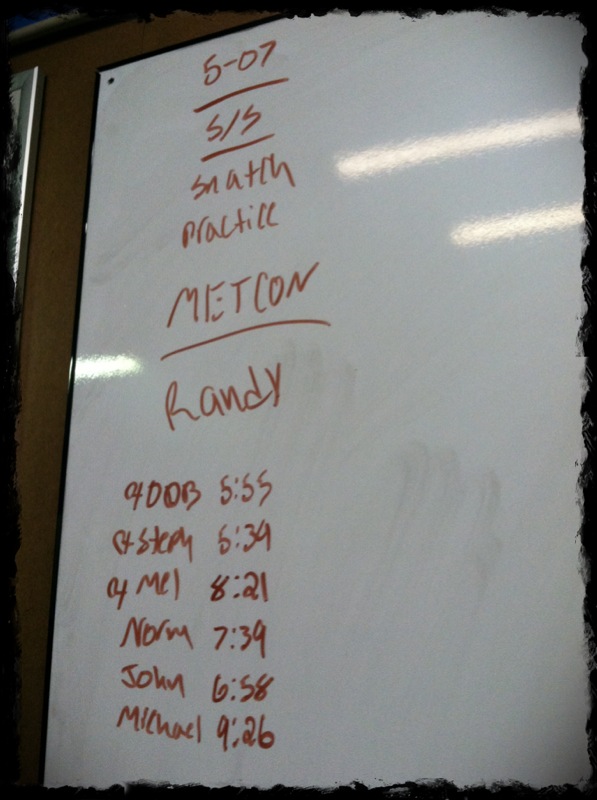 5-07
S/S
snatch
practice
METCON
Randy
DDB 5:55
Steph 5:39
Mel 8:21
Norm 7:39
John 6:58
Michael 9:26